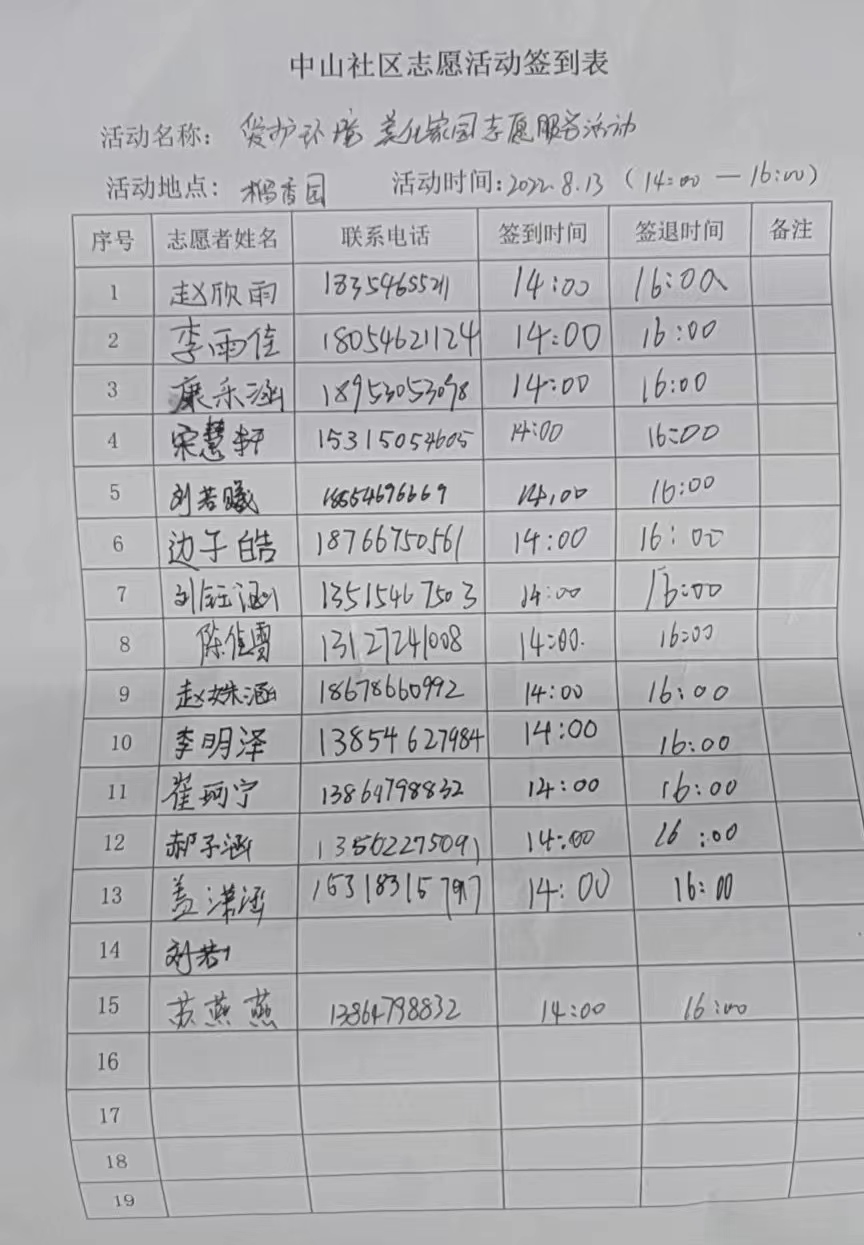 中山社区志愿活动签到表
活动名称：爱护环境 美化家园志愿服务活动
活动地点：榕香园 活动时间：2022.8.13（14:00—16:00）
序号 志愿者姓名 联系电话 签到时间 签退时间 备注
1 赵欣雨 14:00 16:00
2 李雨佳 18054621124 14:00 16:00
3 康采涵 18953053098 14:00 16:00
4 宋慧轩 15315054605 14:00 16:00
5 刘若曦 14:00 16:00
6 边子皓 18766750561 14:00 16:00
7 刘钰涵 13515467503 14:00 16:00
8 陈佳雪 13127241008 14:00 16:00
9 赵姝涵 18678660992 14:00 16:00
10 李明泽 13854627984 14:00 16:00
11 崔珂宁 13864798832 14:00 16:00
12 郝子涵 13562275091 14:00 16:00
13 盖潇涵 14:00 16:00
14
15 苏燕燕 13864798832 14:00 16:00
16
17
18
19